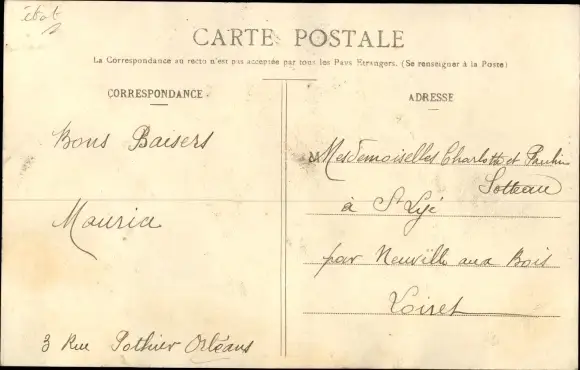 CARTE POSTALE
La Correspondance au recto n'est pas acceptée par tous les Pays Etrangers. (Se renseigner à la Poste)
CORRESPONDANCE
Bons Baisers
Maurice
3 Rue Pothier Orléans
ADRESSE
Mesdemoiselles Charlotte et Paulin
Sotteau
à St Lyé
par Neuville aux Bois
Loiret